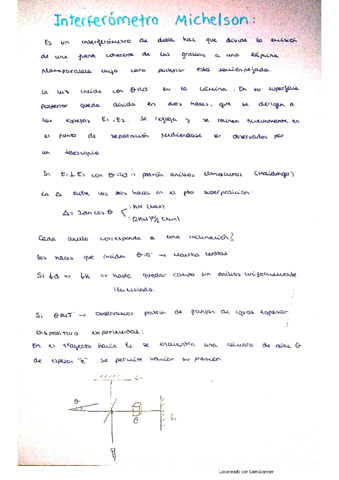 Interferómetro Michelson:
Es un interferómetro de doble haz que divide la emisión
de una fuente coherente de luz gracias a una lámina
planoparalela cuya cara posterior está semiespejada.
La luz incide con en la lámina. En su superficie
posterior queda dividida en dos haces, que se dirigen a
los espejos E1, E2. Se refleja y se reunen nuevamente en
el punto de separación pudiendose ser observados por
un telescopio
Si E1 ⊥ E2 con patrón anillos (Haidinger)
La Δ entre los dos haces en el pto superposición:
Δ = 2dn cos θ
Cada anillo corresponde a una inclinación
los haces que inciden mancha central
Si ↓d → ↓K → hasta quedar campo sin anillos uniformemente
iluminado.
Si observamos patrón de franjas de igual espesor
Dispositivo experimental:
En el trayecto hacia E1 se encuentra una cámara de aire G
de espesor "e". Se permite variar su presión
G
E1
Escaneado con CamScanner